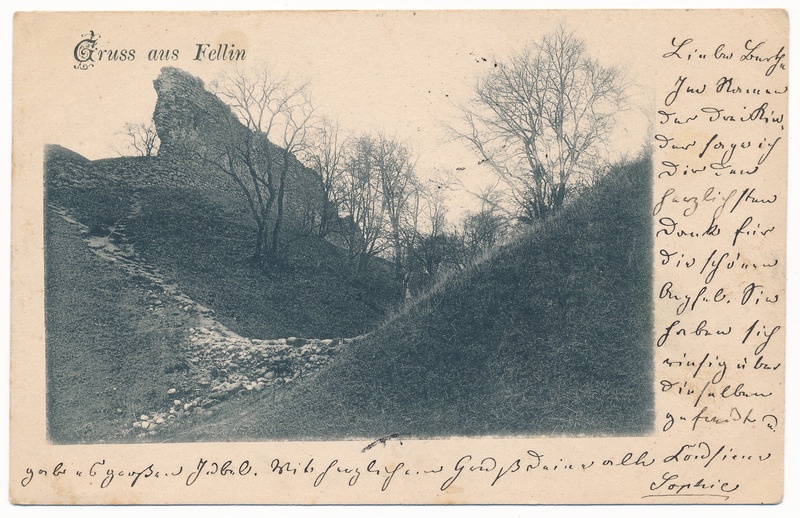 Gruss aus Fellin
Liebe Bertha
Im Namen
der drei Kin-
der sage ich
Dir den
herzlichsten
Dank für
die schönen
Aepfel. Sie
haben sich
riesig über
dieselben
gefreut u
gab es großen Jubel. Mit herzlichem Gruß Deine alte
Sophie